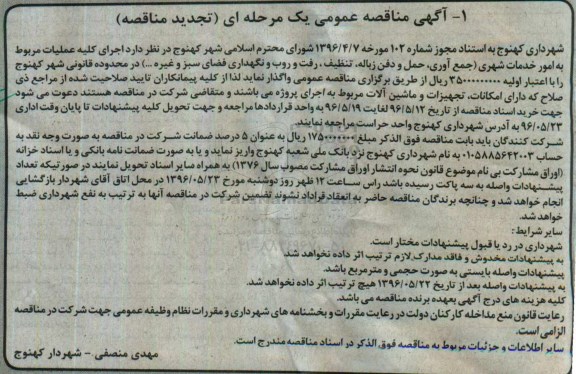 ۱- آگهی مناقصه عمومی یک مرحله ای (تجدید مناقصه)
شهرداری کهنوج به استناد مجوز شماره ۱۰۲ مورخه ۱۳۹۶/۴/۷ شورای محترم اسلامی شهر کهنوج در نظر دارد اجرای کلیه عملیات مربوط
به امور خدمات شهری (جمع آوری، حمل و دفن زباله، تنظیف، رفت و روب و نگهداری فضای سبز و غیره ...) در محدوده قانونی شهر کهنوج
را با اعتبار اولیه ۳۵۰۰۰۰۰۰۰۰۰ ریال از طریق برگزاری مناقصه عمومی واگذار نماید لذا از کلیه پیمانکاران تایید صلاحیت شده از مراجع ذی
صلاح که دارای امکانات، تجهیزات و ماشین آلات مربوط به اجرای پروژه می باشند و متقاضی شرکت در مناقصه هستند دعوت می شود
جهت خرید اسناد مناقصه از تاریخ ۹۶/۵/۱۲ لغایت ۹۶/۵/۱۹ به واحد قراردادها مراجعه و جهت تحویل کلیه پیشنهادات تا پایان وقت اداری
۹۶/۰۵/۲۲ به آدرس شهرداری کهنوج واحد حراست مراجعه نمایند.
شرکت کنندگان باید بابت مناقصه فوق الذکر مبلغ ۱۷۵۰۰۰۰۰۰۰ ریال به عنوان ۵ درصد ضمانت شرکت در مناقصه به صورت وجه نقد به
حساب ۰۱۰۵۸۸۵۶۴۲۰۰۳ به نام شهرداری کهنوج نزد بانک ملی شعبه کهنوج واریز نماید و یا به صورت ضمانت نامه بانکی و یا اسناد خزانه
(اوراق مشارکت بی نام موضوع قانون نحوه انتشار اوراق مشارکت مصوب سال ۱۳۷۶) به همراه سایر اسناد تحویل نمایند در صورتیکه تعداد
پیشنهادات واصله به سه پاکت رسیده باشد راس ساعت ۱۲ ظهر روز دوشنبه مورخ ۱۳۹۶/۰۵/۲۳ در محل اتاق آقای شهردار بازگشایی
انجام خواهد شد و چنانچه برندگان مناقصه حاضر به انعقاد قرارداد نشوند تضمین شرکت در مناقصه آنها به ترتیب به نفع شهرداری ضبط
خواهد شد.
سایر شرایط:
شهرداری در رد یا قبول پیشنهادات مختار است.
به پیشنهادات مخدوش و فاقد مدارک لازم ترتیب اثر داده نخواهد شد.
پیشنهادات واصله بایستی به صورت حجمی و مترمربع باشد.
به پیشنهادات واصله بعد از تاریخ ۱۳۹۶/۰۵/۲۲ هیچ ترتیب اثر داده نخواهد شد.
کلیه هزینه های درج آگهی بعهده برنده مناقصه می باشد.
رعایت قانون منع مداخله کارکنان دولت در رعایت مقررات و بخشنامه های شهرداری و مقررات نظام وظیفه عمومی جهت شرکت در مناقصه
الزامی است.
سایر اطلاعات و جزئیات مربوط به مناقصه فوق الذکر در اسناد مناقصه مندرج است.
مهدی منصفی - شهردار کهنوج